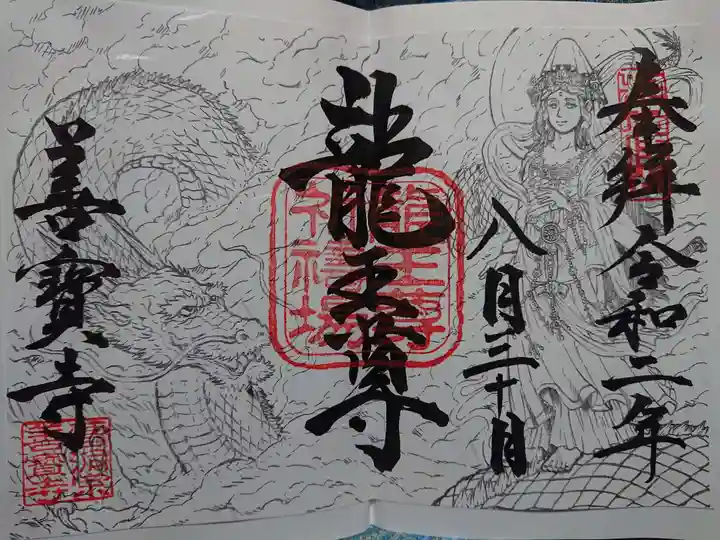 奉拝 令和二年
八月三十日
龍王尊
善寳寺
龍王尊
祈祷場